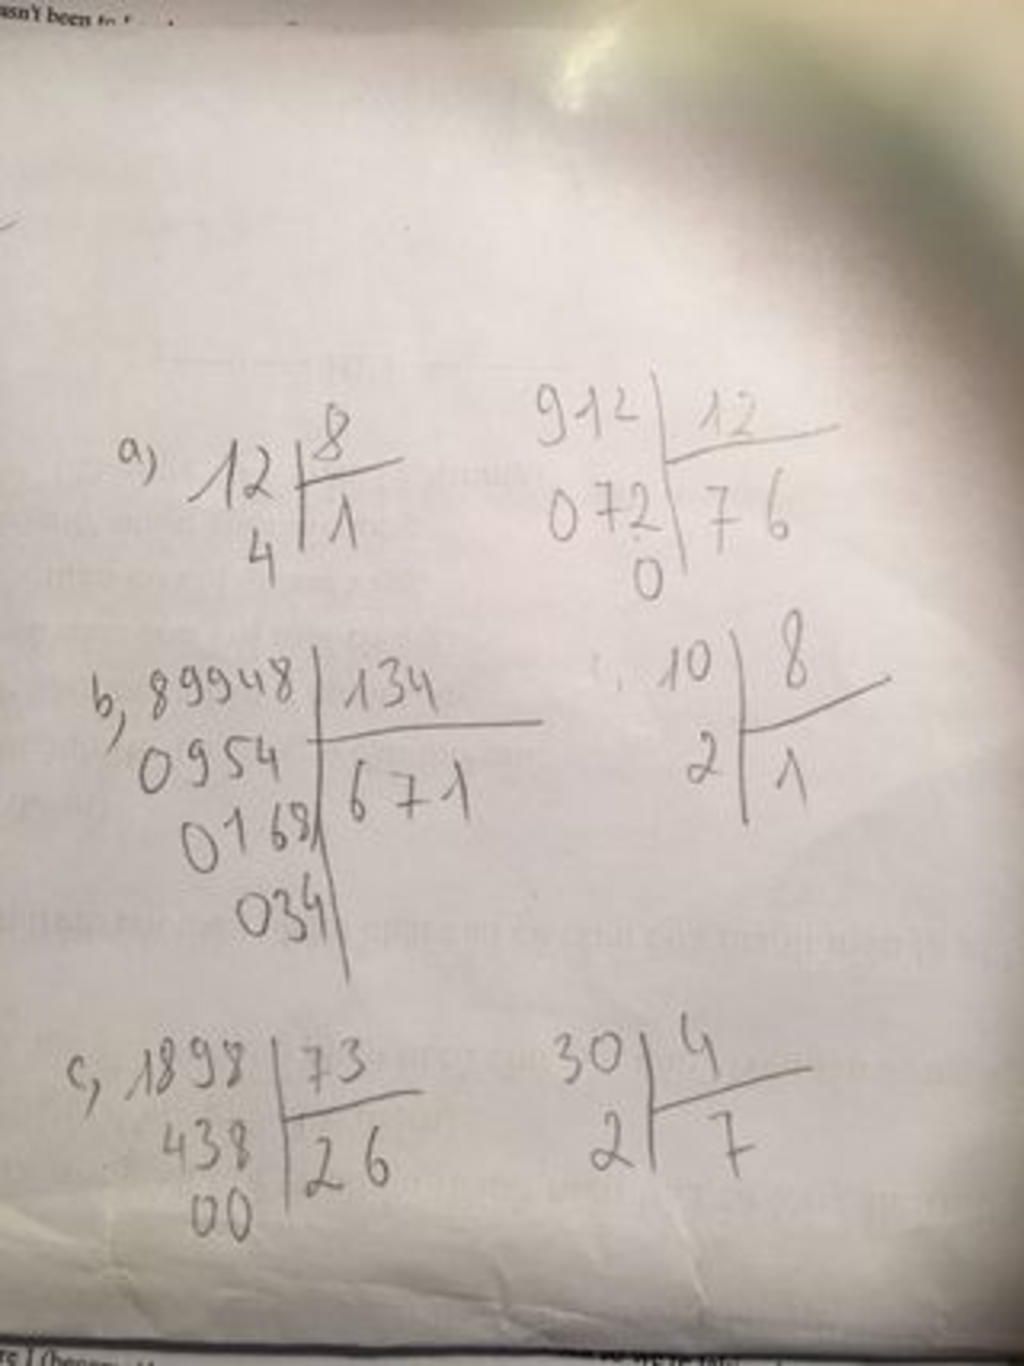 asn't been to
a) 12 8
4 1
912 12
072 76
0
b, 89948 134
0954 671
0168
034
10 8
2 1
c, 1898 73
438 26
00
30 4
2 7